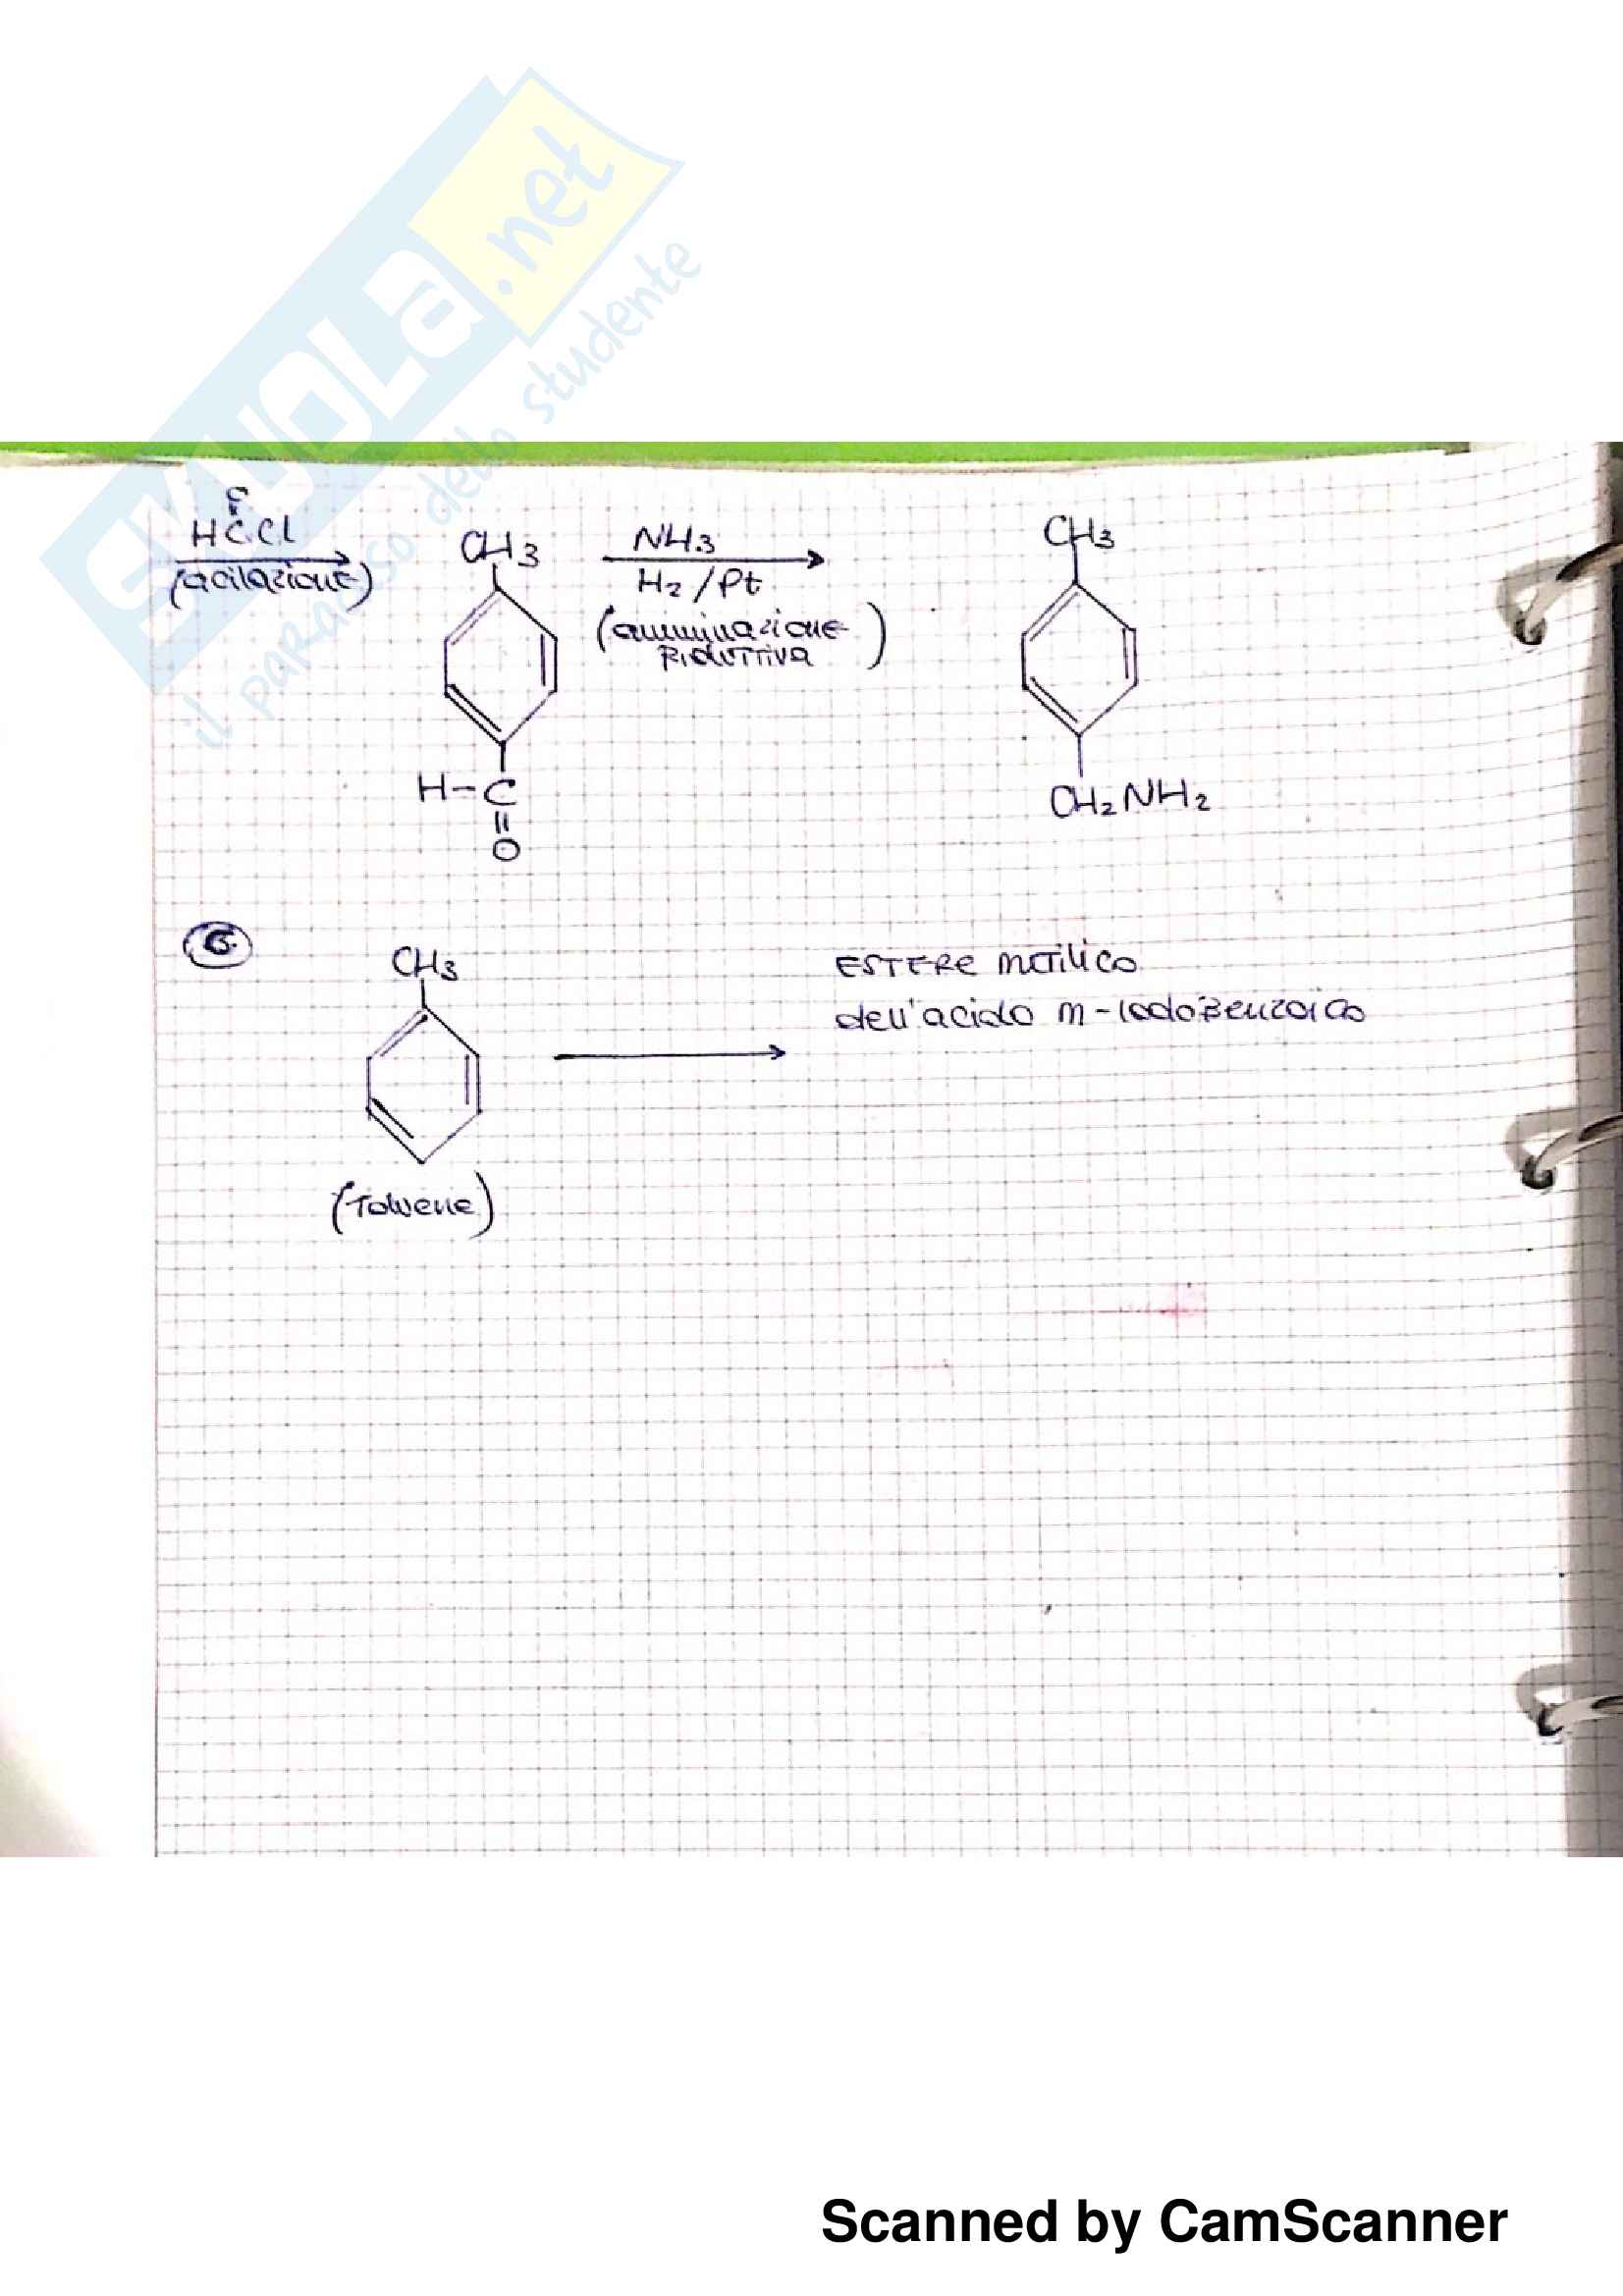 SKUOLA.net
il paradiso dello studente
O
HCCl
(acilazione)
CH3
NH3
H2/Pt
(amminazione
Riduttiva)
CH3
H-C
O
CH2NH2
6.
CH3
ESTERE metilico
dell'acido m-IodoBenzoico
(Toluene)
Scanned by CamScanner